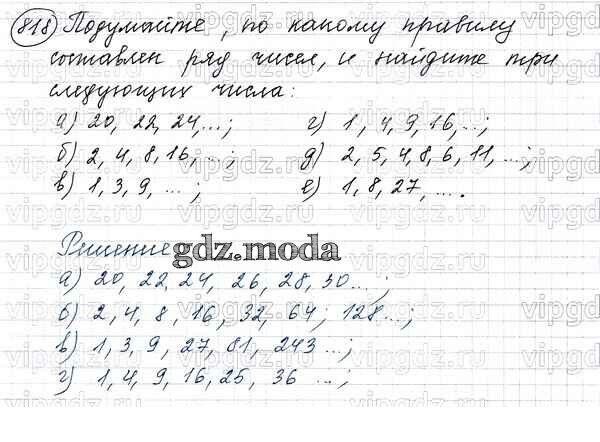 818 Подумайте, по какому правилу
составлен ряд чисел, и найдите три
следующих числа:
а) 20, 22, 24,...; г) 1, 4, 9, 16,...;
б) 2, 4, 8, 16, ...; д) 2, 5, 4, 8, 6, 11, ...;
в) 1, 3, 9, ...; е) 1, 8, 27, ....
Решение
gdz.moda
а) 20, 22, 24, 26, 28, 30...;
б) 2, 4, 8, 16, 32, 64, 128...;
в) 1, 3, 9, 27, 81, 243...;
г) 1, 4, 9, 16, 25, 36 ...;
vipgdz.ru